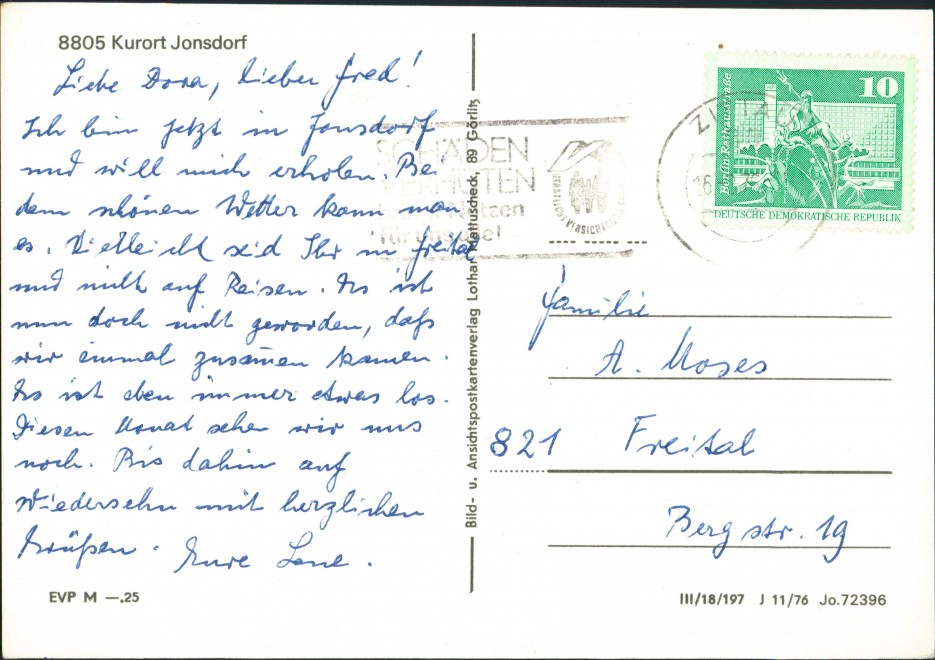 8805 Kurort Jonsdorf
Liebe Dora, Lieber Fred!
Ich bin jetzt in Jonsdorf
und will mich erholen. Bei
dem schönen Wetter kann man
es. Vielleicht seid Ihr in Freital
und nicht auf Reisen. Es ist
nun doch nicht geworden, daß
wir einmal zusamen kamen.
Es ist eben immer etwas los.
Diesen Monat sehen wir uns
noch. Bis dahin auf
Wiedersehn mit herzlichen
Grüßen. Eure Lene.
EVP M —,25
Bild- u. Ansichtspostkartenverlag Lothar Mattuscheck, 89 Görlitz
SCHÄDEN
VERHÜTEN
10
Berlin · Rathausstraße
DEUTSCHE DEMOKRATISCHE REPUBLIK
Familie
A. Moses
821 Freital
Bergstr. 19
III/18/197 J 11/76 Jo.72396